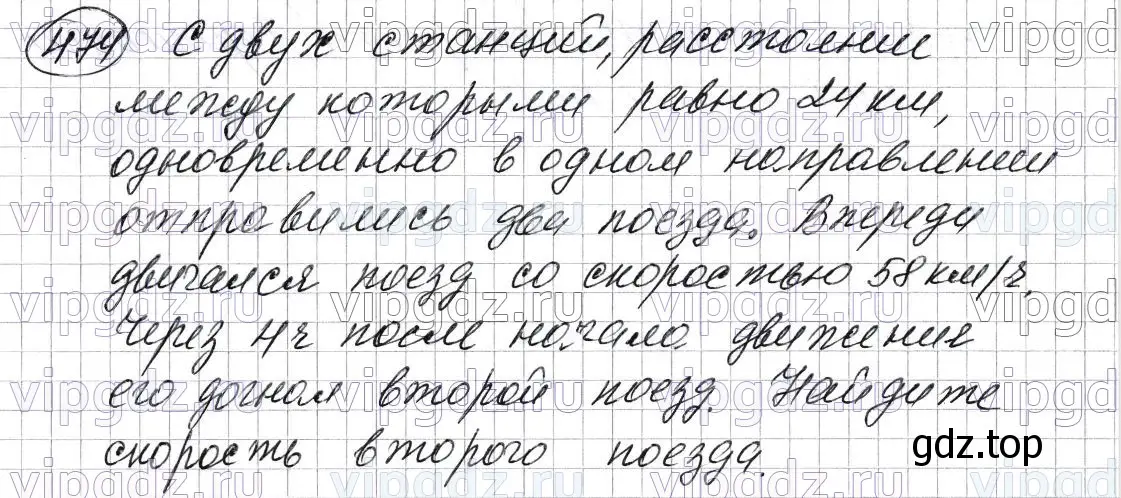 474 С двух станций, расстояние
между которыми равно 24 км,
одновременно в одном направлении
отправились два поезда. Впереди
двигался поезд со скоростью 58 км/ч.
Через 4 ч после начала движения
его догнал второй поезд. Найдите
скорость второго поезда.
gdz.top
vipgdz.ru